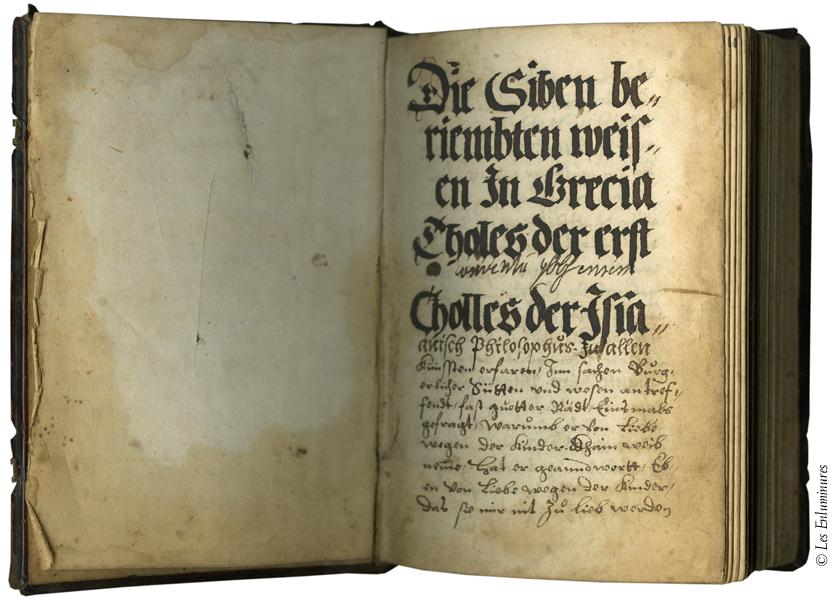 Die Siben be„
riembten weis„
en In Grecia
Tholes der erst
Cholles der Isia„
anisch Philosophus. In allen
Kunsten erfaren, Inn sachen Burg„
erlicher Sitten und wesen antref„
fendt, fast guetter Rädt, Eins mals
gefragt, warumb er von Liebe
wegen der Kinder Khain weib
neme, Hat er geanndwortt, Eb„
en von Liebe wegen der Kinder,
das sie mir nit zu lieb werden
© Les Enluminures